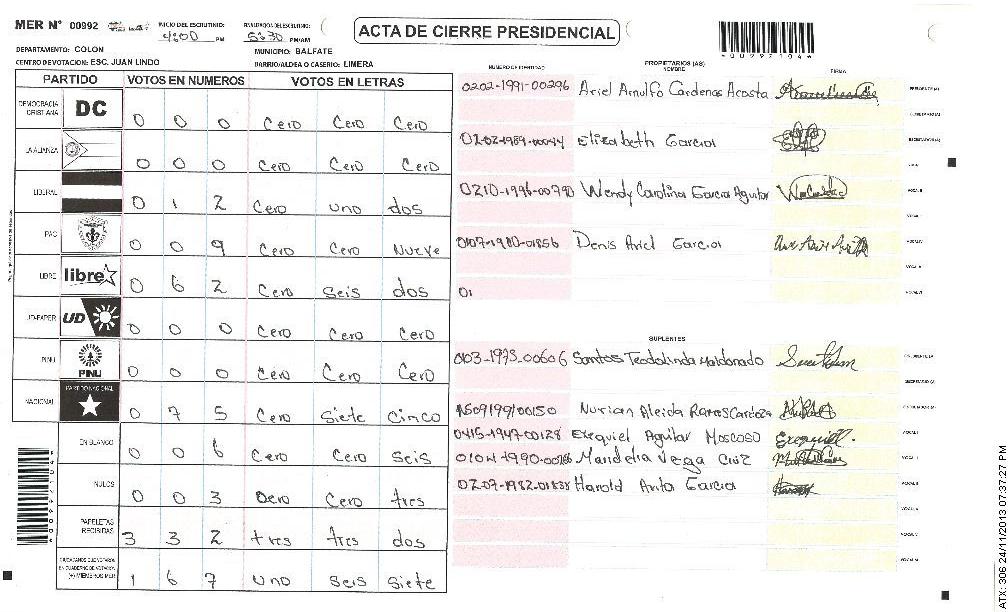 MER N° 00992
INICIO DEL ESCRUTINIO: 4:00 PM
5:30 PM/AM
ACTA DE CIERRE PRESIDENCIAL
DEPARTAMENTO: COLON
MUNICIPIO: BALFATE
CENTRO DE VOTACION: ESC. JUAN LINDO
BARRIO/ALDEA O CASERIO: LIMERA
PARTIDO VOTOS EN NUMEROS VOTOS EN LETRAS
DEMOCRACIA CRISTIANA DC 0 0 0 Cero Cero Cero
LA ALIANZA 0 0 0 Cero Cero Cero
LIBERAL 0 1 2 Cero uno dos
PAC 0 0 9 Cero Cero Nueve
LIBRE libre 0 6 2 Cero Seis dos
UD-FAPER UD 0 0 0 Cero Cero Cero
PINU PINU 0 0 0 Cero Cero Cero
NACIONAL PARTIDO NACIONAL 0 7 5 Cero Siete Cinco
EN BLANCO 0 0 6 Cero Cero Seis
NULOS 0 0 3 Cero Cero tres
PAPELETAS RECIBIDAS 3 3 2 tres tres dos
(+) MIEMBROS MER 1 6 7 Uno Seis Siete
NUMERO DE IDENTIDAD
PROPIETARIOS (AS)
NOMBRE
FIRMA
0202-1991-00296 Ariel Arnulfo Cardenas Acosta
0202-1989-00044 Elizabeth Garcia
0210-1996-00790 Wendy Carolina Garcia Aguilar
0107-1980-01856 Denis Ariel Garcia
01
SUPLENTES
0103-1973-00606 Santos Teodolinda Maldonado
Nurian Aleida Ramos Cardoza
0415-1947-00128 Exequiel Aguilar Moscoso Exequiel.
Mandelia Vega Cruz
0207-1982-01838 Harold Avila Garcia
ATX: 306 24/11/2013 07:37:27 PM